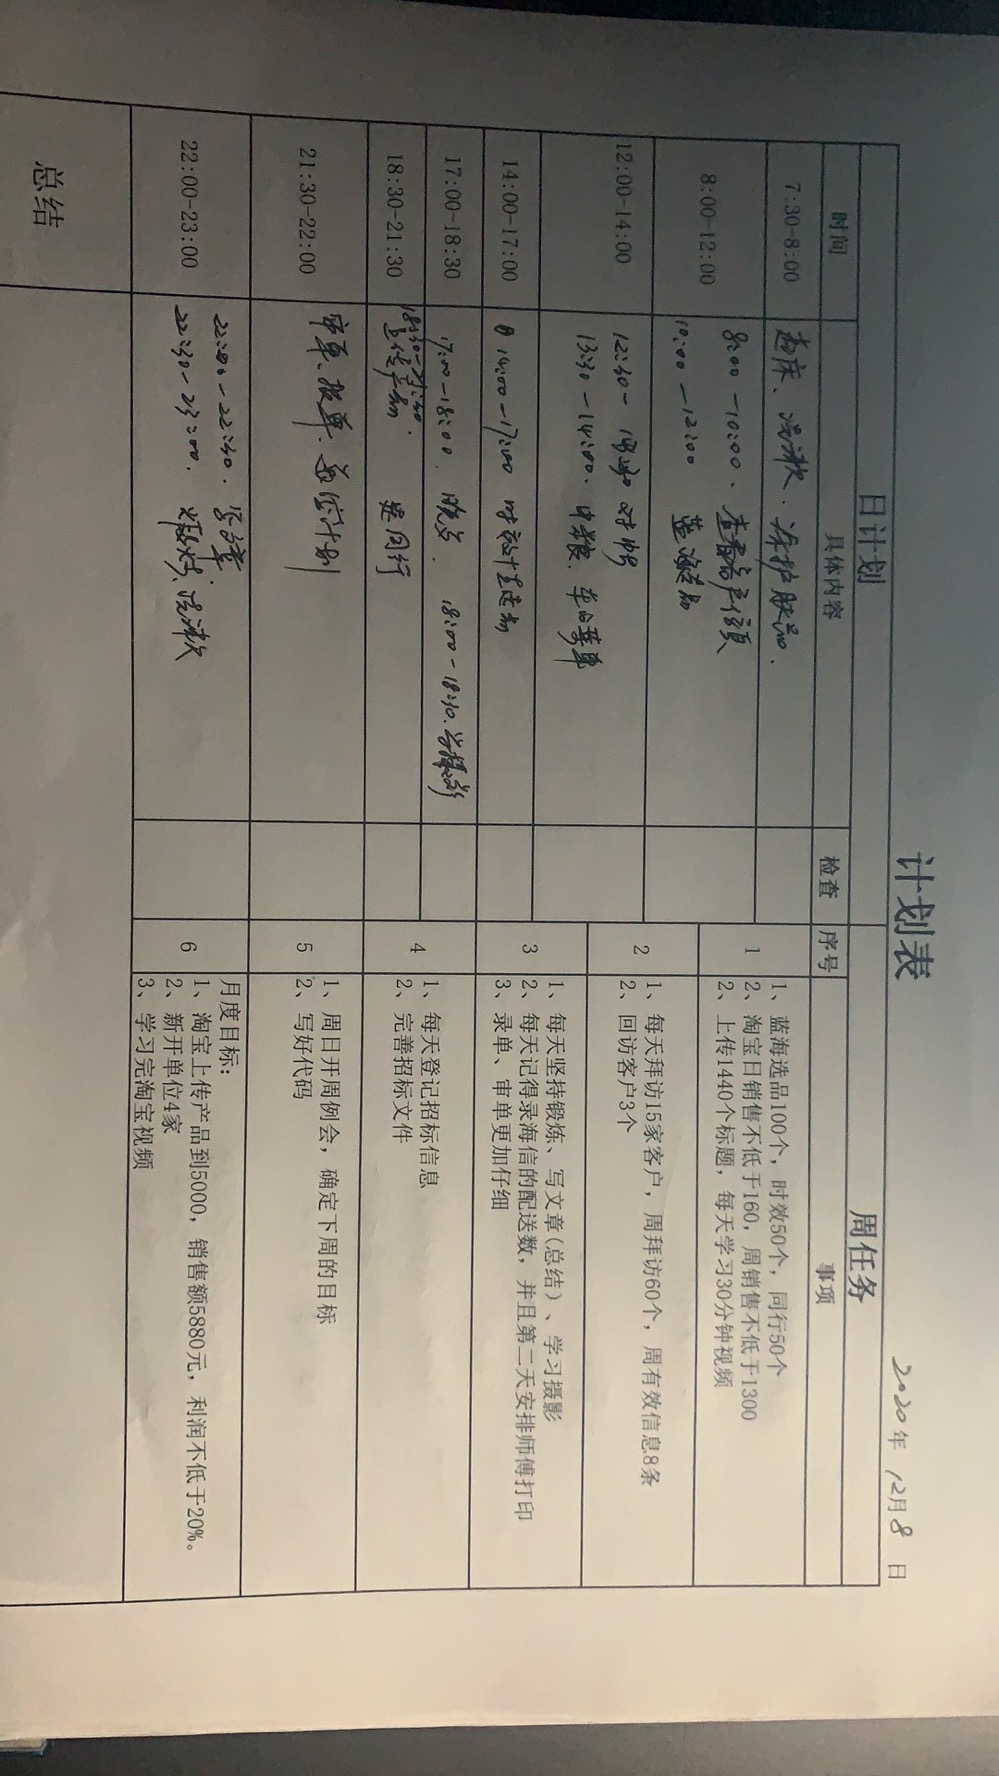 计划表
2020年 12月 8 日
日计划 周任务
时间 具体内容 检查 序号 事项
7:30-8:00 起床、洗漱、涂护肤品.
8:00-12:00 8:00-10:00.
10:00-12:00
12:00-14:00 12:30-
13:30-14:00.
14:00-17:00 14:00-17:00
17:00-18:30 17:00-18:00. 晚 18:00-18:30. 学摄影
18:30-21:30 同行
21:30-22:00 审单、报单、计划
22:00-23:00 22:00-22:30.
22:30-23:00. 洗漱
总结
1
1、蓝海选品100个，时效50个，同行50个
2、淘宝日销售不低于160，周销售不低于1300
2、上传1440个标题，每天学习30分钟视频
2
1、每天拜访15家客户，周拜访60个，周有效信息8条
2、回访客户3个
3
1、每天坚持锻炼、写文章(总结)、学习摄影
2、每天记得录海信的配送数，并且第二天安排师傅打印
3、录单、审单更加仔细
4
1、每天登记招标信息
2、完善招标文件
5
1、周日开周例会，确定下周的目标
2、写好代码
6
月度目标:
1、淘宝上传产品到5000，销售额5880元，利润不低于20%。
2、新开单位4家
3、学习完淘宝视频